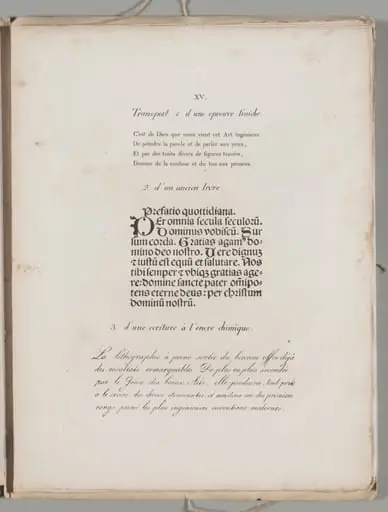 XV.
Transport 1. d'une epreuve fraiche.
C'est de Dieu que nous vient cet Art ingenieux
De peindre la parole et de parler aux yeux,
Et par des traits divers de figures tracées,
Donner de la couleur et du
2. d'un ancien livre.
Prefatio quottidiana.
PEr omnia secula seculorū.
Dominus vobiscū. Sur
sum corda. Gratias agamꝰ do-
mino deo nostro. Vere dignuʒ
⁊ iustū est equū et salutare. Nos
tibi semper ⁊ vbiqʒ gratias age-
re: domine sancte pater om̄ipo-
tens eterne deus: per christum
dominū nostrū.
3. d'une ecriture à l'encre chimique.
La lithographie à peine sortie du berceau offre déjà
des resultats remarquables. De plus en plus secondée
par le Genie des beaux Arts, elle produira, tout porte
à le croire des choses étonnantes, et montera au premier
rang parmi les plus ingénieuses inventions modernes.